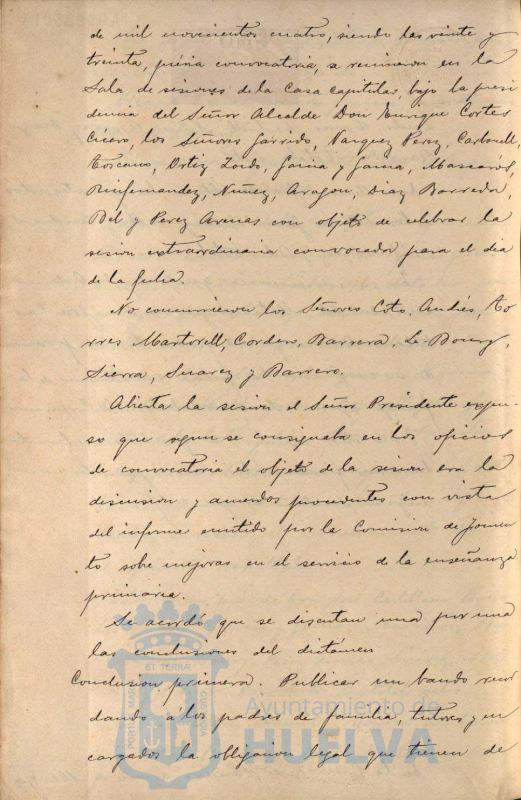 de mil novecientos cuatro, siendo las veinte y
treinta, prévia convocatoria, se reunieron en la
Sala de sesiones de la Casa capitular, bajo la presi
dencia del Señor Alcalde Don Enrique Cortes
Cícero, los Señores Garrido, Vazquez Perez, Carbonell,
Toscano, Ortiz Zardo, Garcia y Garcia, Mascarós,
Ruifernandez, Nuñez, Aragon, Diaz Barreda,
Bel y Perez Arenas con objeto de celebrar la
sesion extraordinaria convocada para el dia
de la fecha.
No concurrieron los Señores Coto, Andrés, To
rres Martorell, Cordero, Barrera, Le-Bourg,
Sierra, Suarez y Barrero.
Abierta la sesion el Señor Presidente expu-
so que segun se consignaba en los oficios
de convocatoria el objeto de la sesion era la
discusion y acuerdos procedentes con vista
del informe emitido por la Comision de Fomen
to sobre mejoras en el servicio de la enseñanza
primaria.
Se acordó que se discutan una por una
las conclusiones del dictámen
Conclusion primera. Publicar un bando recor
dando á los padres de familia, tutores y en
cargados la obligacion legal que tienen de
ET TERRÆ
PORTUS MARIS
CUSTODIA
Ayuntamiento de
HUELVA